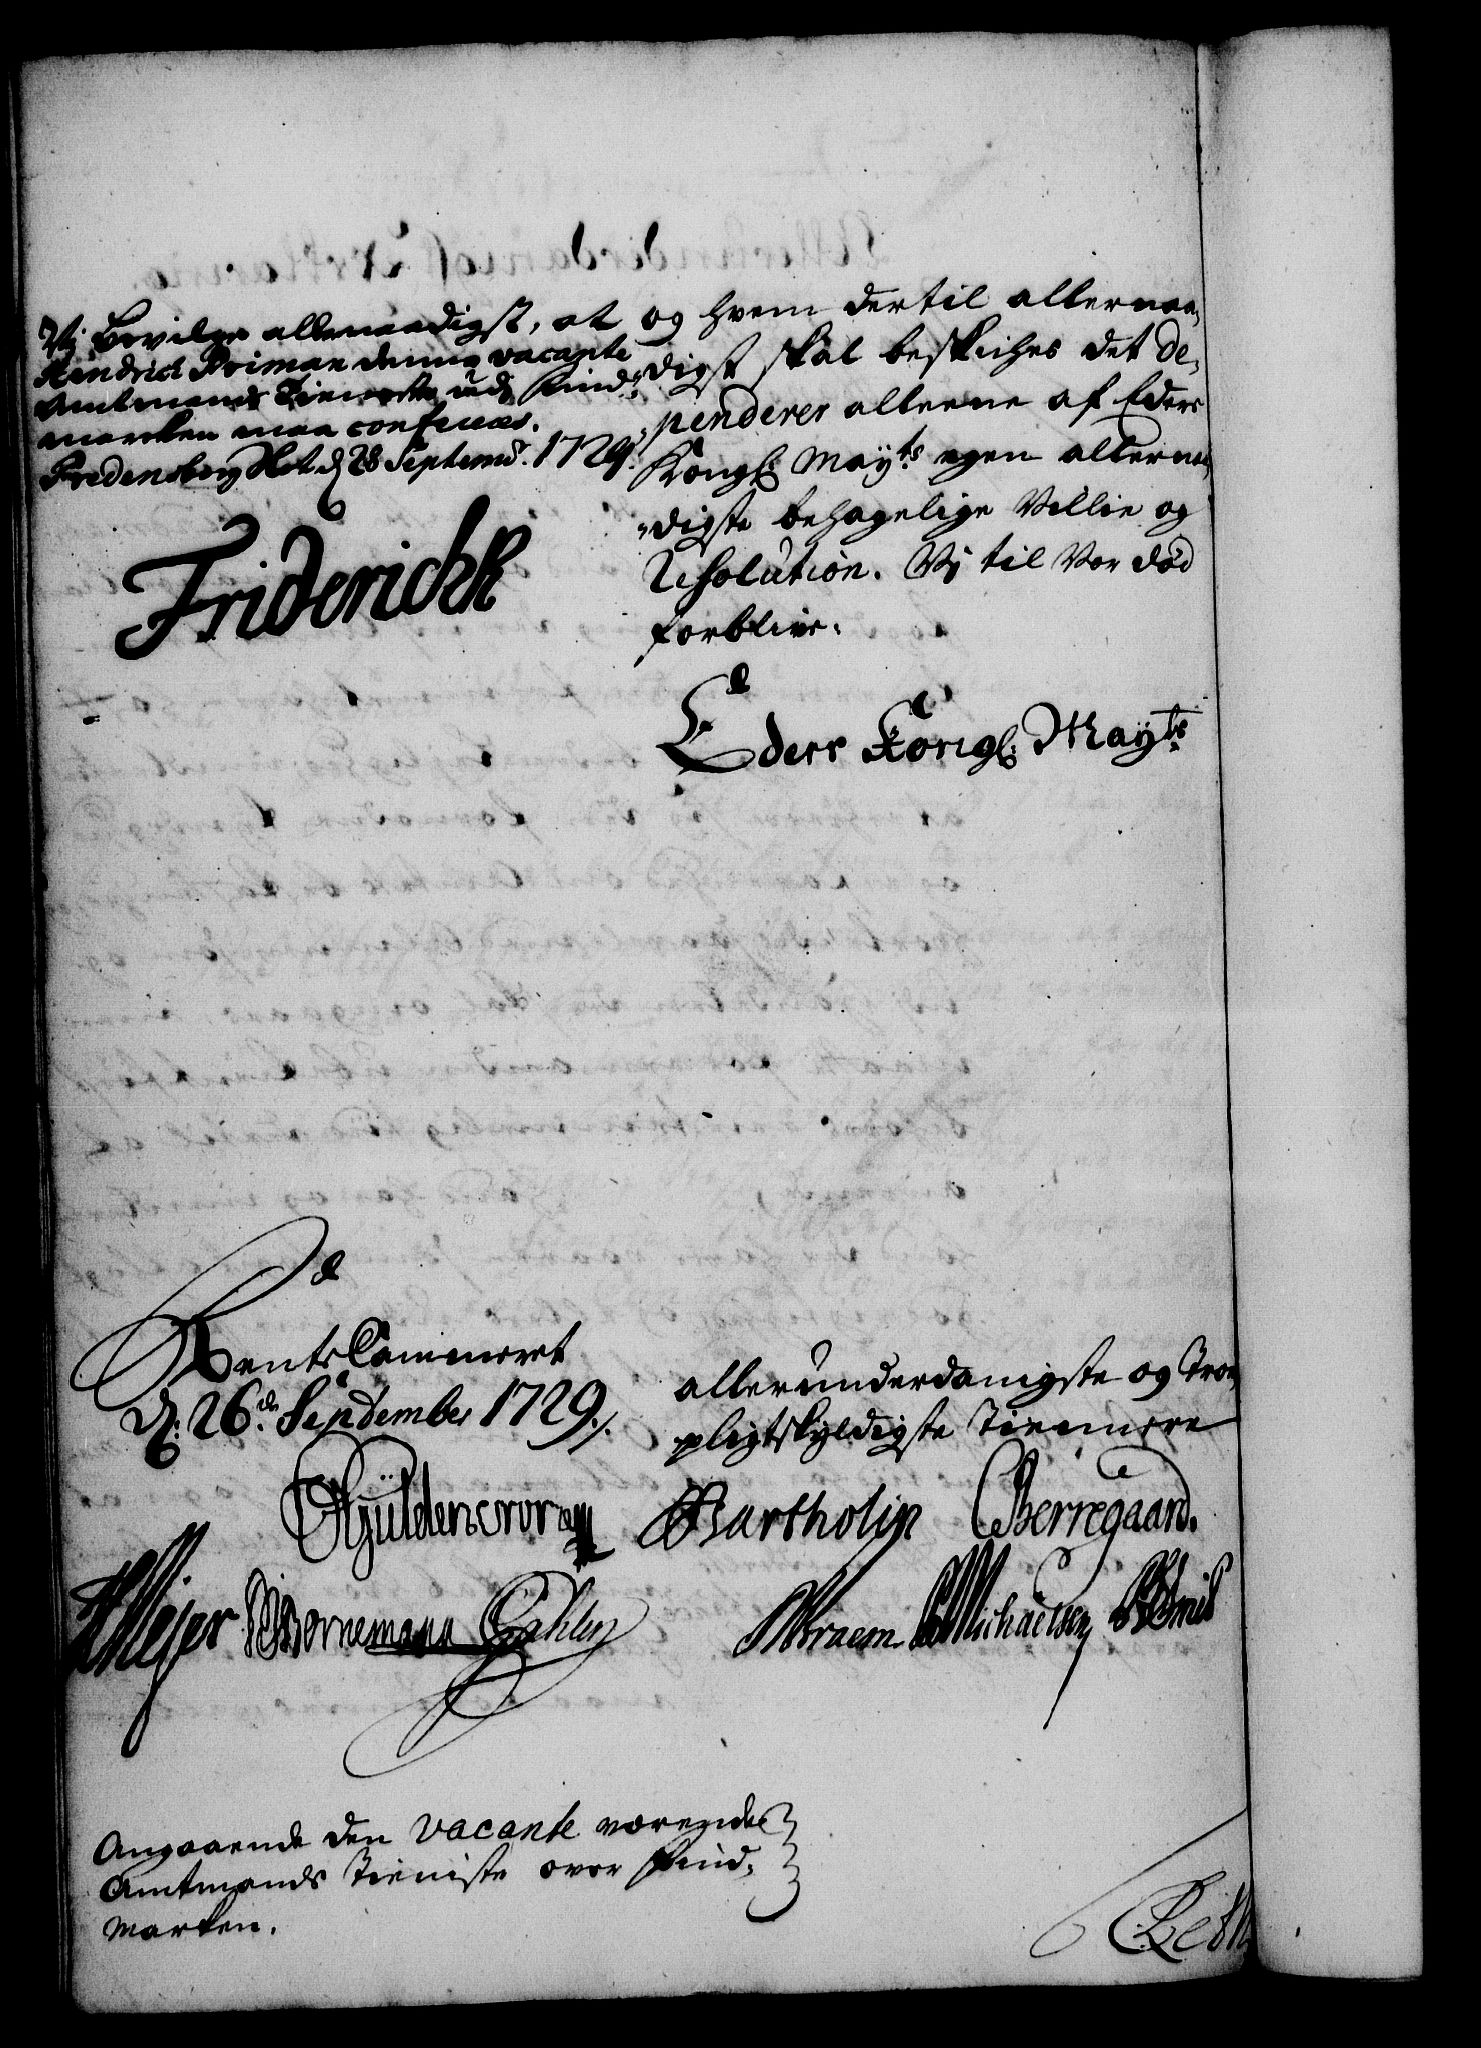 Vj bevilge allernaadigst, at
Hendrich Priman denne vacante
Amtmands Tieneste udj Find-
marcken maa conferes.
Fredensborg Slot d 28 Septembr. 1729.
Friderich R
og hvem dertil allernaa-
digst skal beskiches det de-
penderer alleene af Eders
Kongl: Mayts egen allernaa-
digste behagelige Villie og
Resolution. Vj til Vor død
forblive.
Eders Kongl: Mayts
RenteCammeret
d: 26de September 1729./.
allerunderdanigste og Troe
pligtskyldigste Tiennere
Gÿldencrone
Bartholin
CBerregaard.
HMejer Bornemann
Braem Michaelsen
Angaaende den vacante værende
Amtmands Tieniste over Find-
marken.